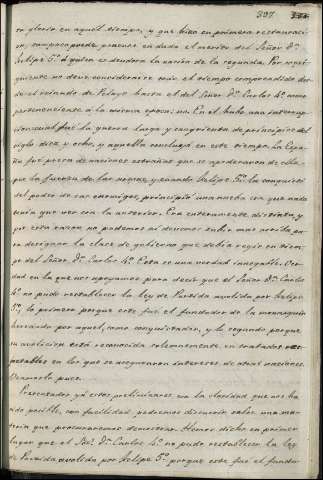 397
ro glorio en aquel tiempo, y que hizo en primera restauracion,
tampoco puede ponerse en duda el merito del Señor Dn.
Felipe 5º á quien es deudora la nacion de la segunda. Por consiguiente
no deve considerarse todo el tiempo comprendido desde
el reinado de Pelayo hasta el del Señor Dn. Carlos 4º como
perteneciente á la misma epoca: no. En el hubo una interrupcion
cual fué la guerra larga y sangrienta de principios del
siglo diez y ocho, y aquella concluyó en este tiempo. La España
fué presa de naciones estrañas que se apoderaron de ella
por la fuerza de las armas, y cuando Felipe 5º la conquistó
del poder de sus enemigos, principió una nueva con que nada
tenia que ver con la anterior. Era enteramente distinta, y
por esta razon no podemos al discurrir subir mas arriba para
designar la clase de gobierno que debia regir en tiempo
del Señor Dn. Carlos 4º. Esta es una verdad innegable. Verdad
en la que nos apoyamos para decir que el Señor Dn. Carlos
4º no pudo restablecer la ley de Partida avolida por Felipe
5º, lo primero porque este fué el fundador de la monarquia
heredada por aquel, como conquistador, y lo segundo porque
su abolicion está reconocida solemnemente, en tratados respetables
en los que se aseguraron intereses de otras naciones.
Veamoslo pues.
Presentados yá estos preliminares con la claridad que nos ha
sido posible, con facilidad podemos discurrir sobre una materia
que procuraremos demostrar. Hemos dicho en primer
lugar que el Sor. Dn. Carlos 4º no pudo restablecer la ley
de Partida avolida por Felipe 5º porque este fué el funda-